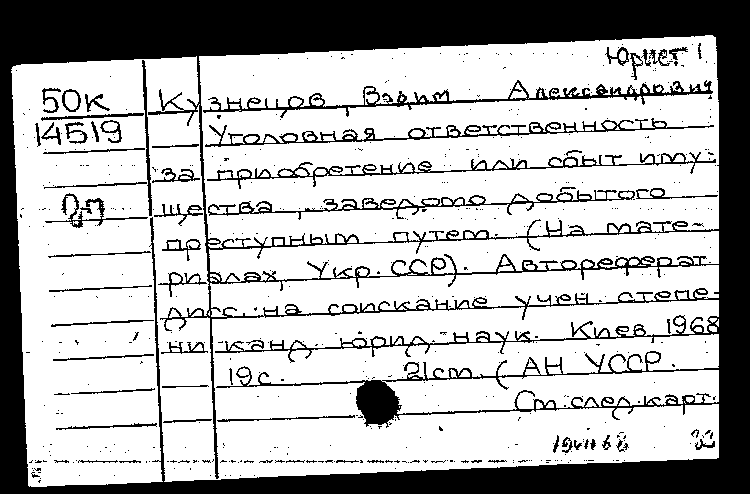 Юрист 1
50к Кузнецов, Вадим Александрович
14519 Уголовная ответственность
за приобретение или сбыт иму-
щества, заведомо добытого
преступным путем. (На мате-
риалах, Укр. ССР). Автореферат
дисс. на соискание учен. степе-
ни канд. юрид. наук. Киев, 1968
19 с. 21 см. (АН УССР.
См. след. карт.